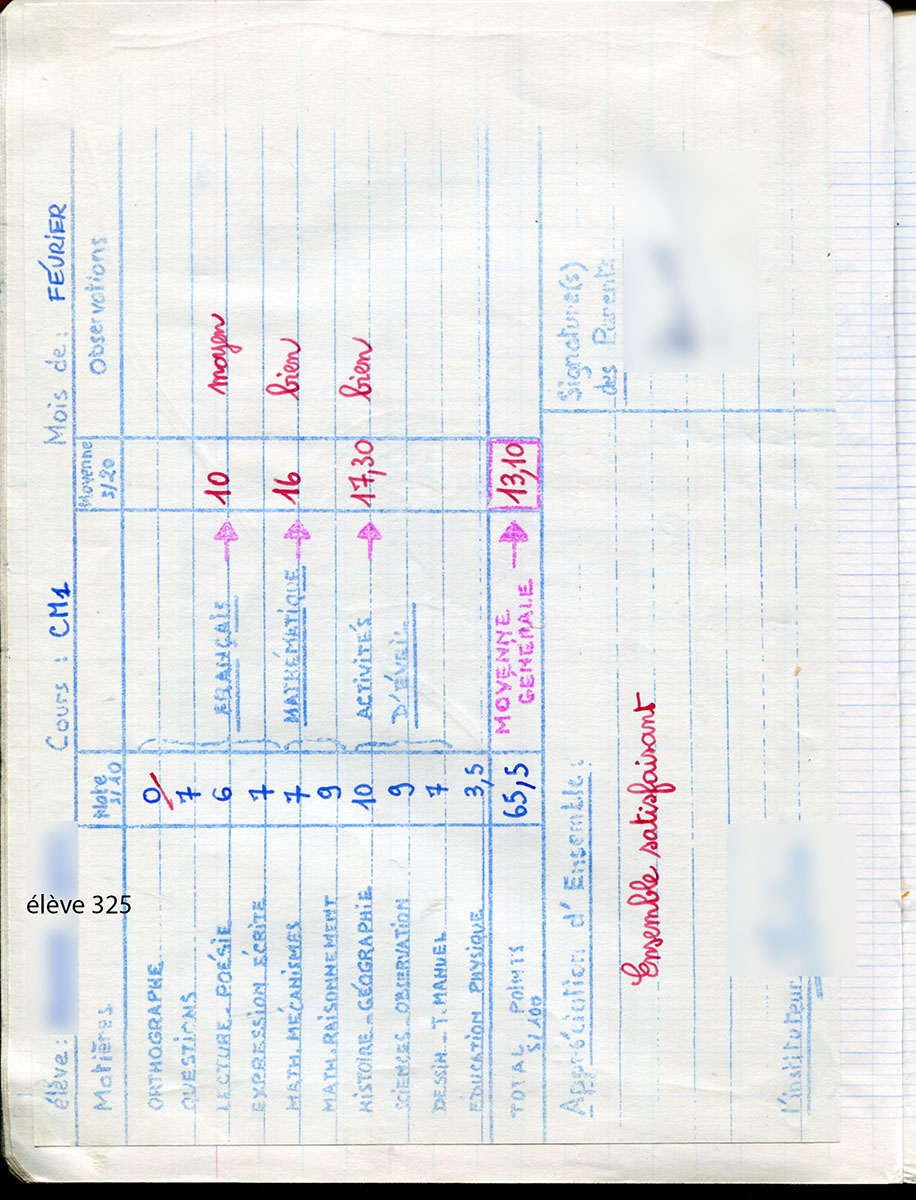 élève 325
élève : Cours : CM1 Mois de : FÉVRIER
Matières Note s/10 Moyenne s/20 Observations
ORTHOGRAPHE 0
QUESTIONS 7
LECTURE_POÉSIE 6 FRANÇAIS → 10 moyen
EXPRESSION ÉCRITE 7
MATH. MÉCANISMES 7 MATHÉMATIQUE → 16 bien
MATH. RAISONNEMENT 9
HISTOIRE_GÉOGRAPHIE 10 ACTIVITÉS → 17,30 bien
SCIENCES. OBSERVATION 9 D'ÉVEIL
DESSIN_T. MANUEL 7
EDUCATION PHYSIQUE 3,5
TOTAL POINTS 65,5 MOYENNE → 13,10
S/100 GENERALE
Appréciation d'Ensemble : Signature(s)
des Parents
Ensemble satisfaisant
L'instituteur